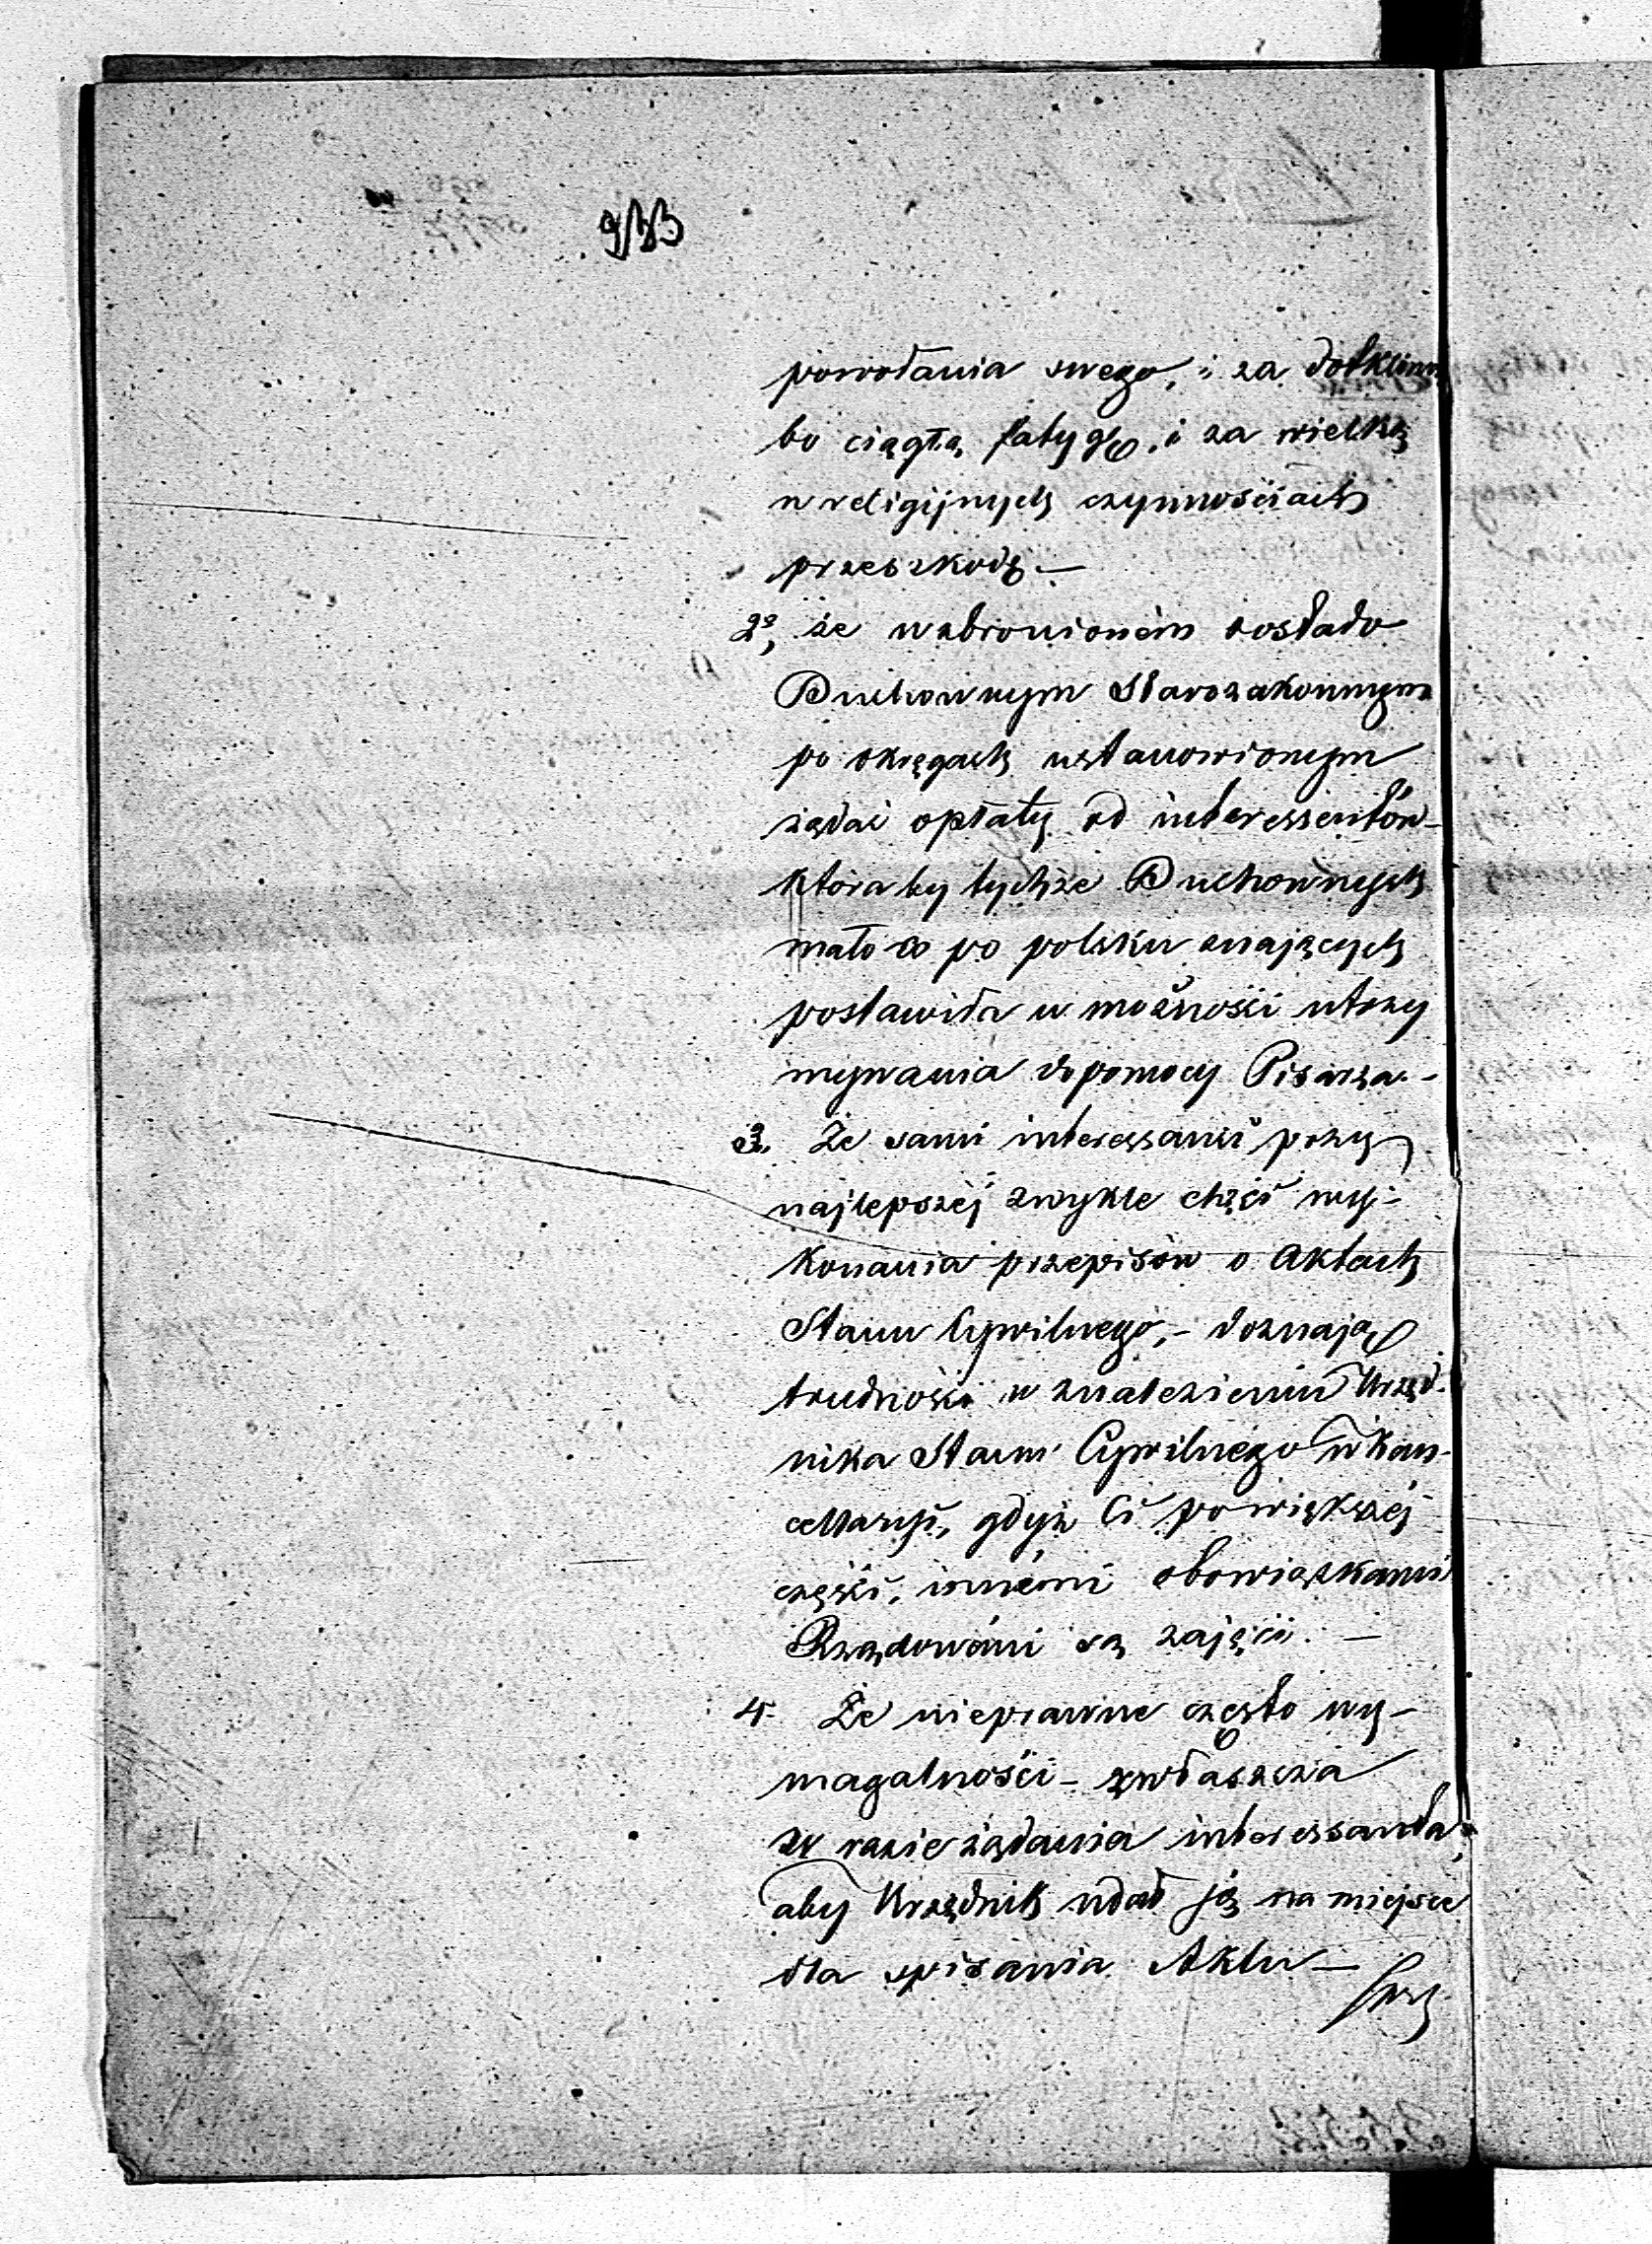 powołania swego, i za dotkliwą
bo ciągłą fatygę, i za wielką
w religijnych czynnościach
przeszkodę. —
2º, że wzbronionem zostało
Duchownym Starozakonnym
po okręgach ustanowionym
żądać opłaty od interessentów
któraby tychże Duchownych
mało co po polsku znających
postawiła w możności utrzy
mywania dopomocy Pisarza. -
3. Że sami interessanci przy
najlepszéj zwykle chęci wy-
konania przepisów o Aktach
Stanu Cywilnego, - doznają
trudności w znalezieniu Urzęd-
nika Stanu Cywilnego w Kan-
cellaryi, gdyż Ci powiększéj
części, innémi obowiązkami
Rządowémi są zajęci. —
4. Że nieprawne często wy-
magalności - zwłaszcza
w razie żądania interessanta,
aby Urzędnik udał się na miejsce
dla spisania Aktu —